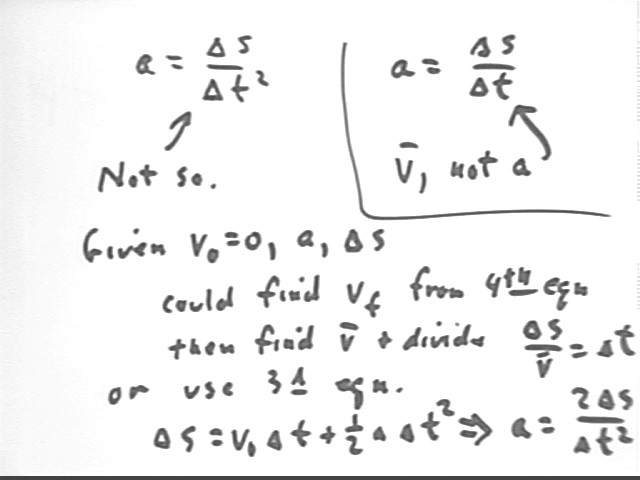 a = Δs/Δt²
Not so.
a = Δs/Δt
v̄, not a
Given v₀=0, a, Δs
could find v_f from 4th eqn
then find v̄ + divide Δs/v̄ = Δt
or use 3d eqn.
Δs = v₀ Δt + ½ a Δt² ⇒ a = 2Δs/Δt²